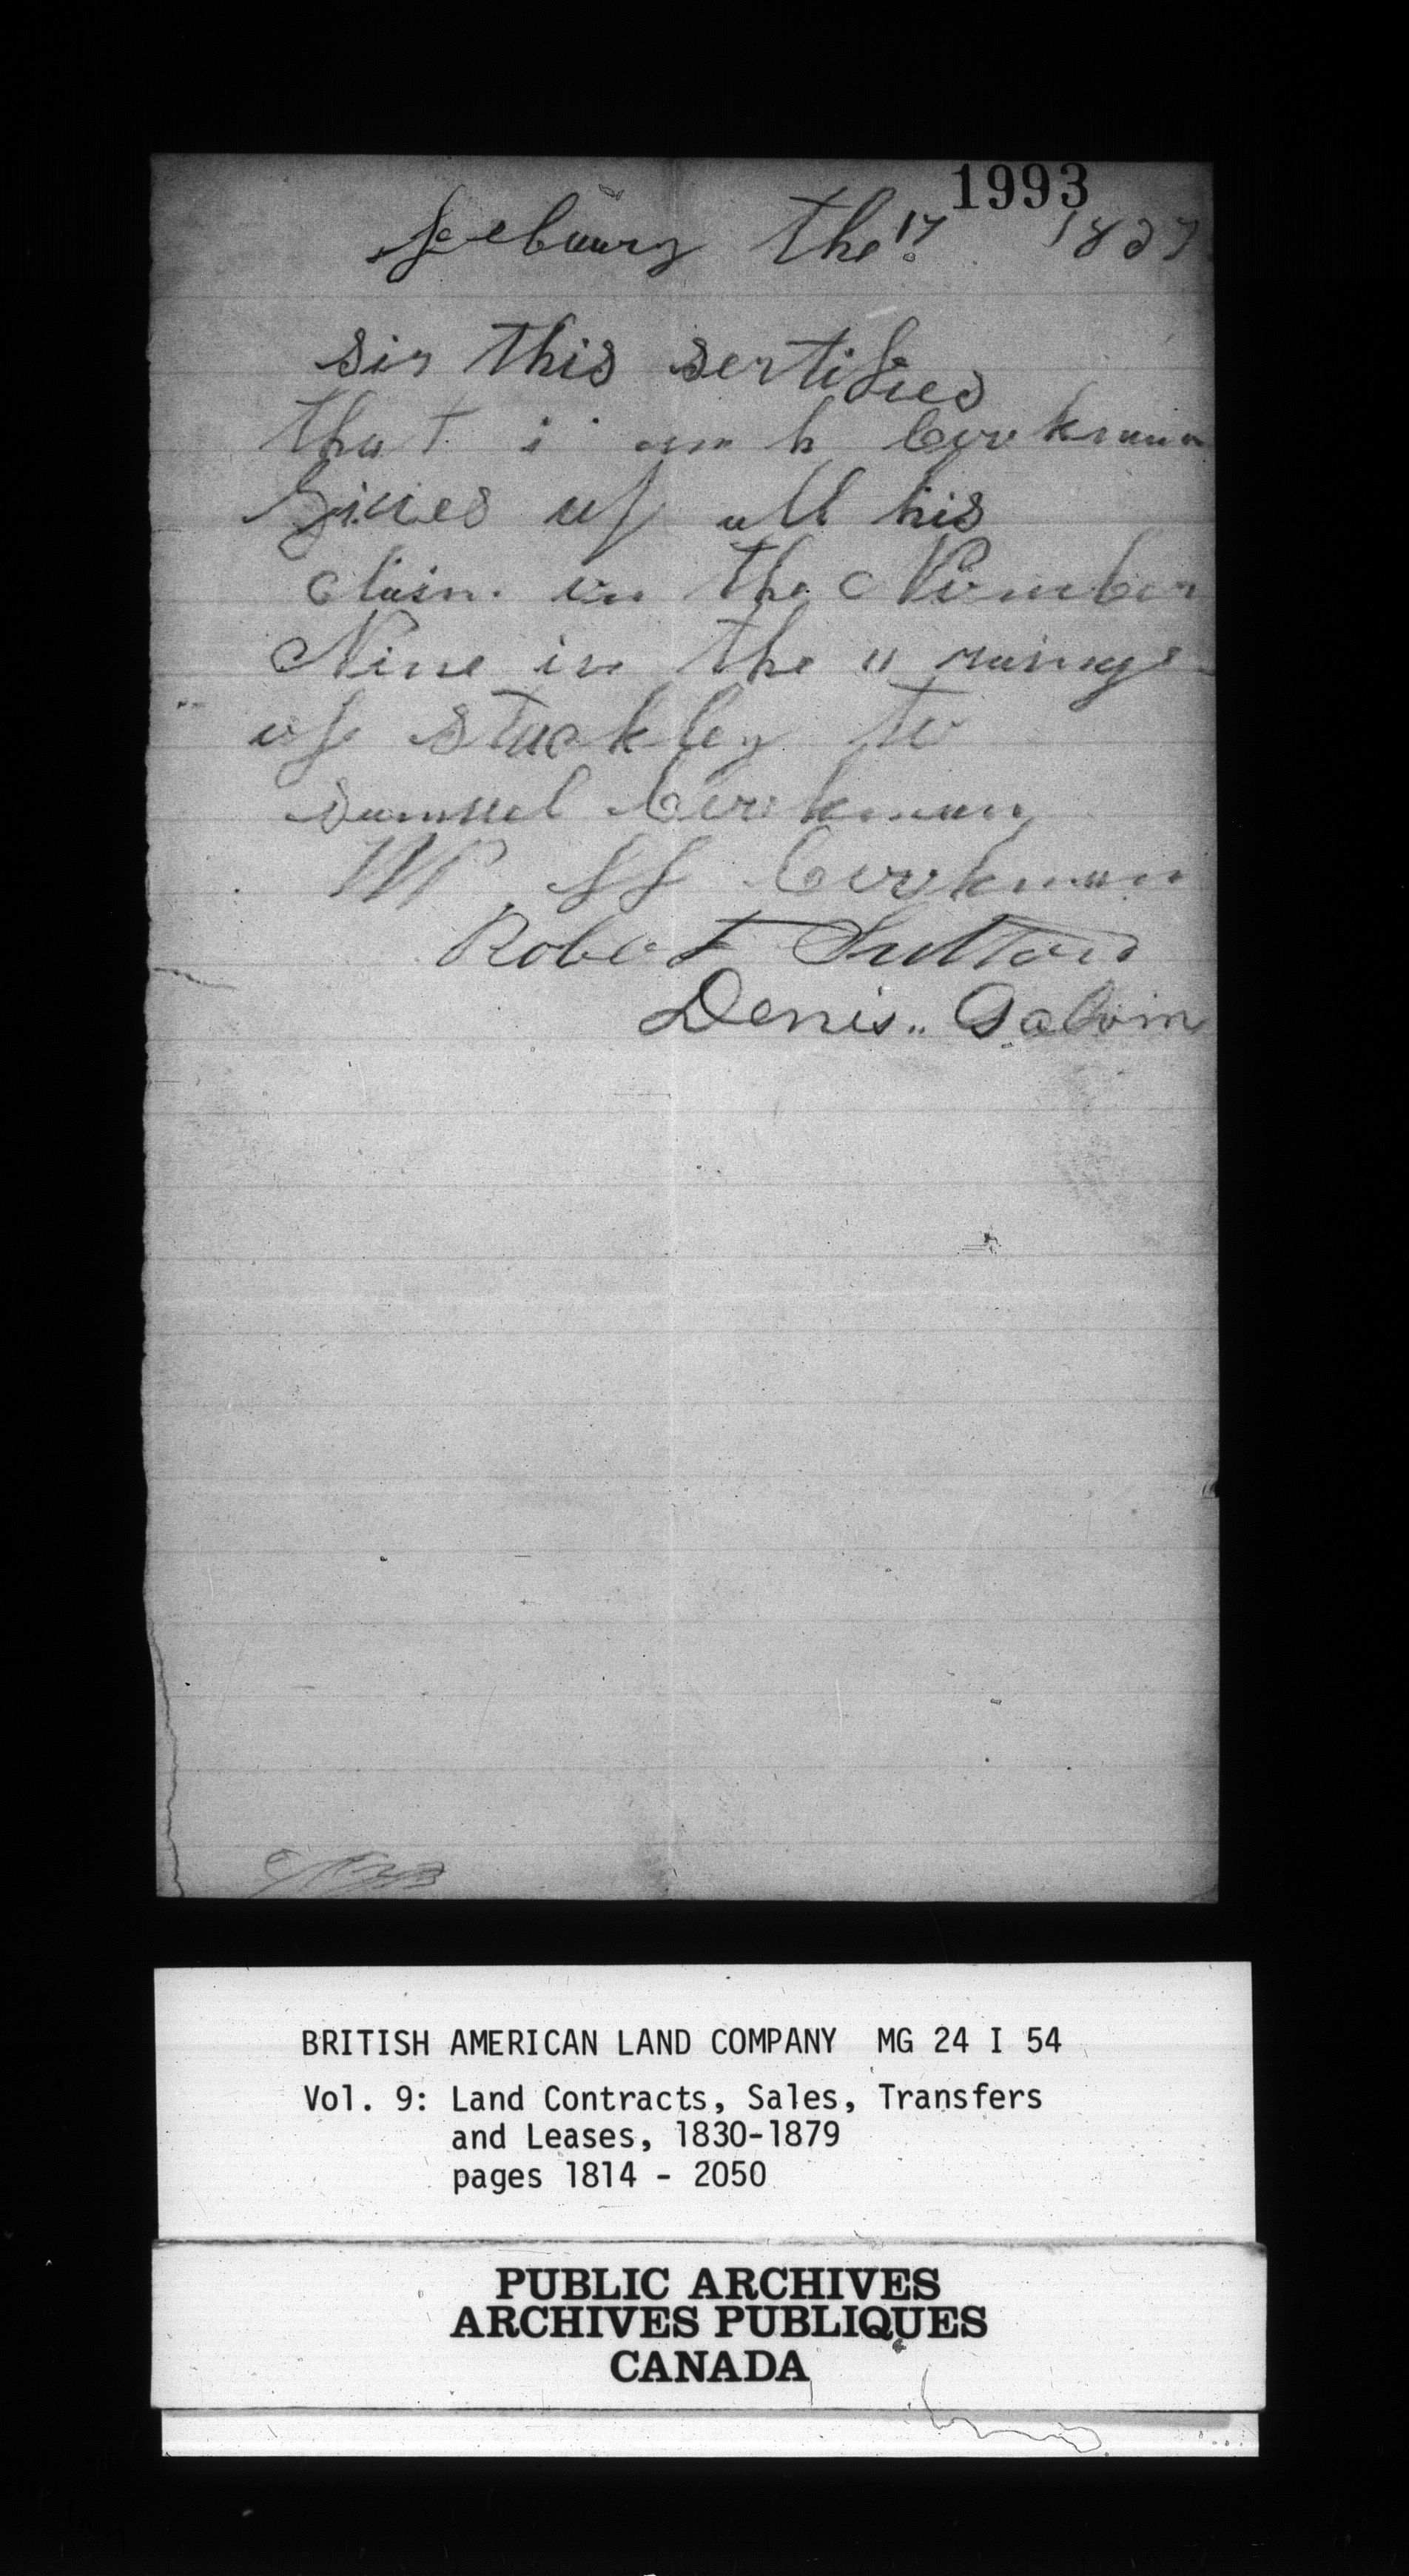 1993
Febuary the 17 1837
sir this sertifies
that i am h Corkman
Gives up all his
claim on the Number
Nine in the 11 rainge
of Stuckley to
Samuel Corkman
Corkman
Robert Sutton
Denis Galvin
BRITISH AMERICAN LAND COMPANY MG 24 I 54
Vol. 9: Land Contracts, Sales, Transfers
and Leases, 1830-1879
pages 1814 - 2050
PUBLIC ARCHIVES
ARCHIVES PUBLIQUES
CANADA